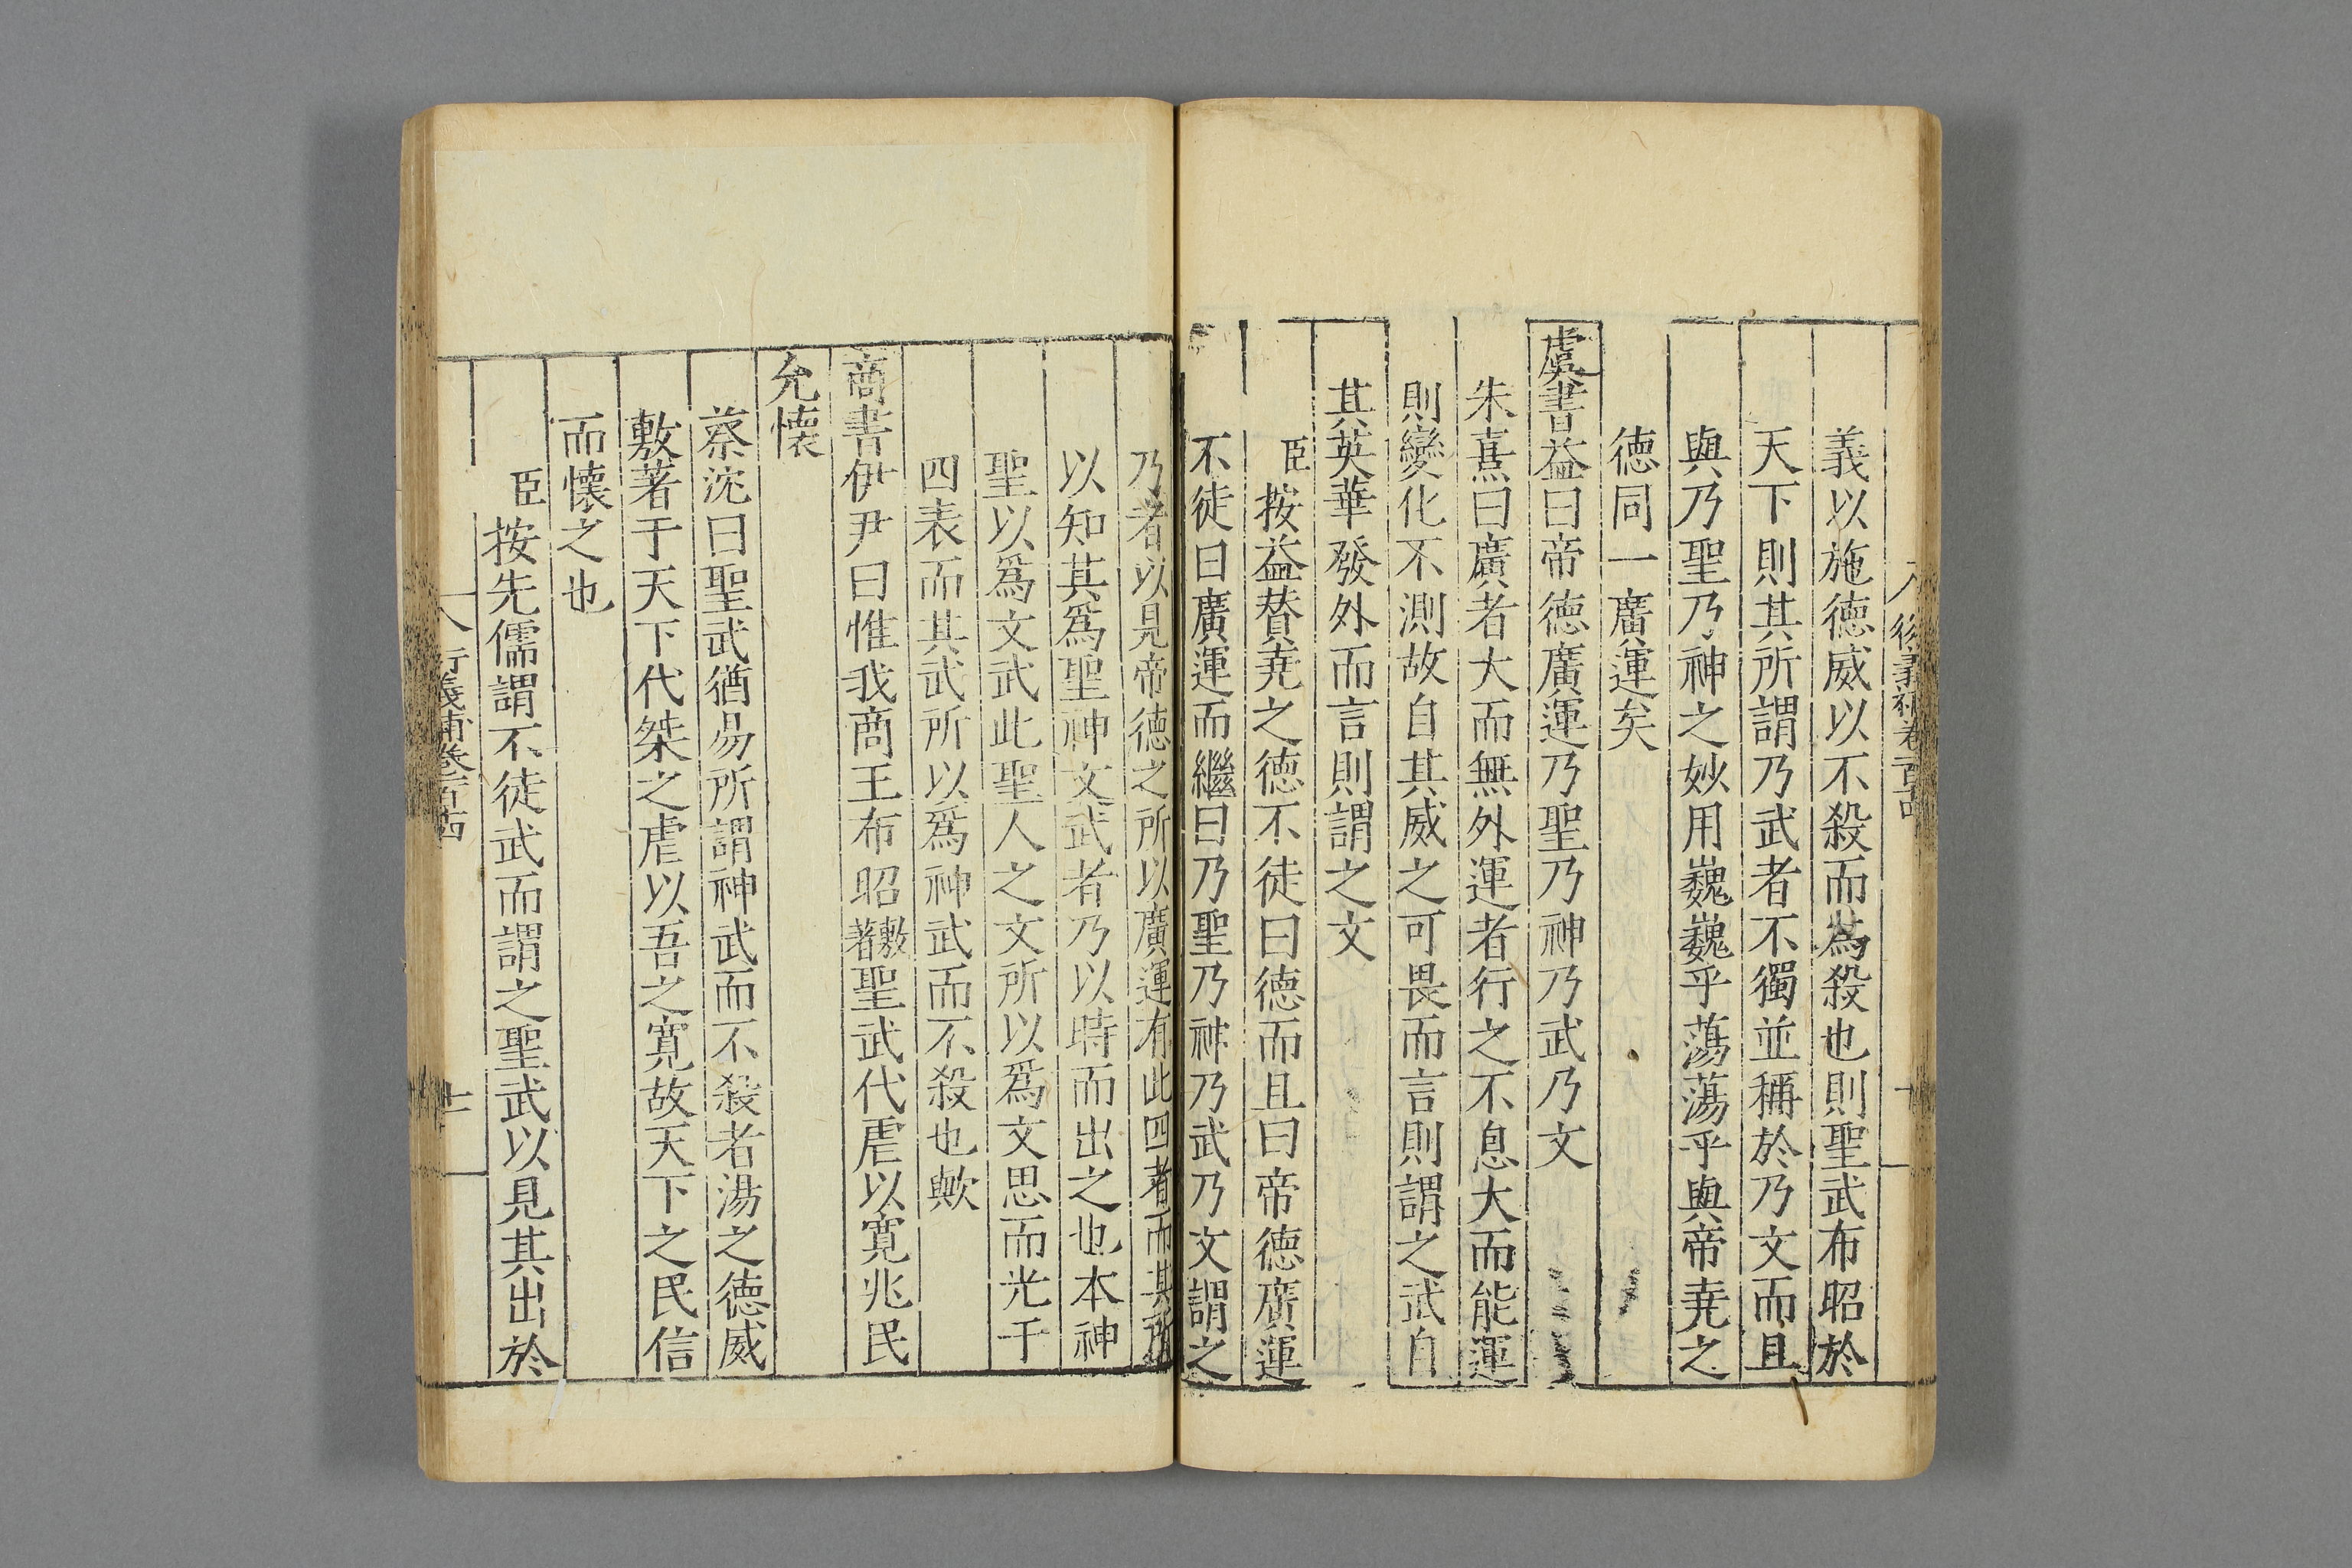 義以施德威以不殺而為殺也則聖武布昭於
天下則其所謂乃武者不獨並稱於乃文而且
與乃聖乃神之妙用巍巍乎蕩蕩乎與帝堯之
德同一廣運矣
虞書益曰帝德廣運乃聖乃神乃武乃文
朱熹曰廣者大而無外運者行之不息大而能運
則變化不測故自其威之可畏而言則謂之武自
其英華發外而言則謂之文
臣按益賛堯之德不徒曰德而且曰帝德廣運
不徒曰廣運而繼曰乃聖乃神乃武乃文謂之
乃者以見帝德之所以廣運有此四者而其所
以知其爲聖神文武者乃以時而出之也本神
聖以爲文武此聖人之文所以爲文思而光于
四表而其武所以爲神武而不殺也歟
商書伊尹曰惟我商王布昭敷著聖武代虐以寬兆民
允懷
蔡沈曰聖武猶易所謂神武而不殺者湯之德威
敷著于天下代桀之虐以吾之寬故天下之民信
而懷之也
臣按先儒謂不徒武而謂之聖武以見其出於